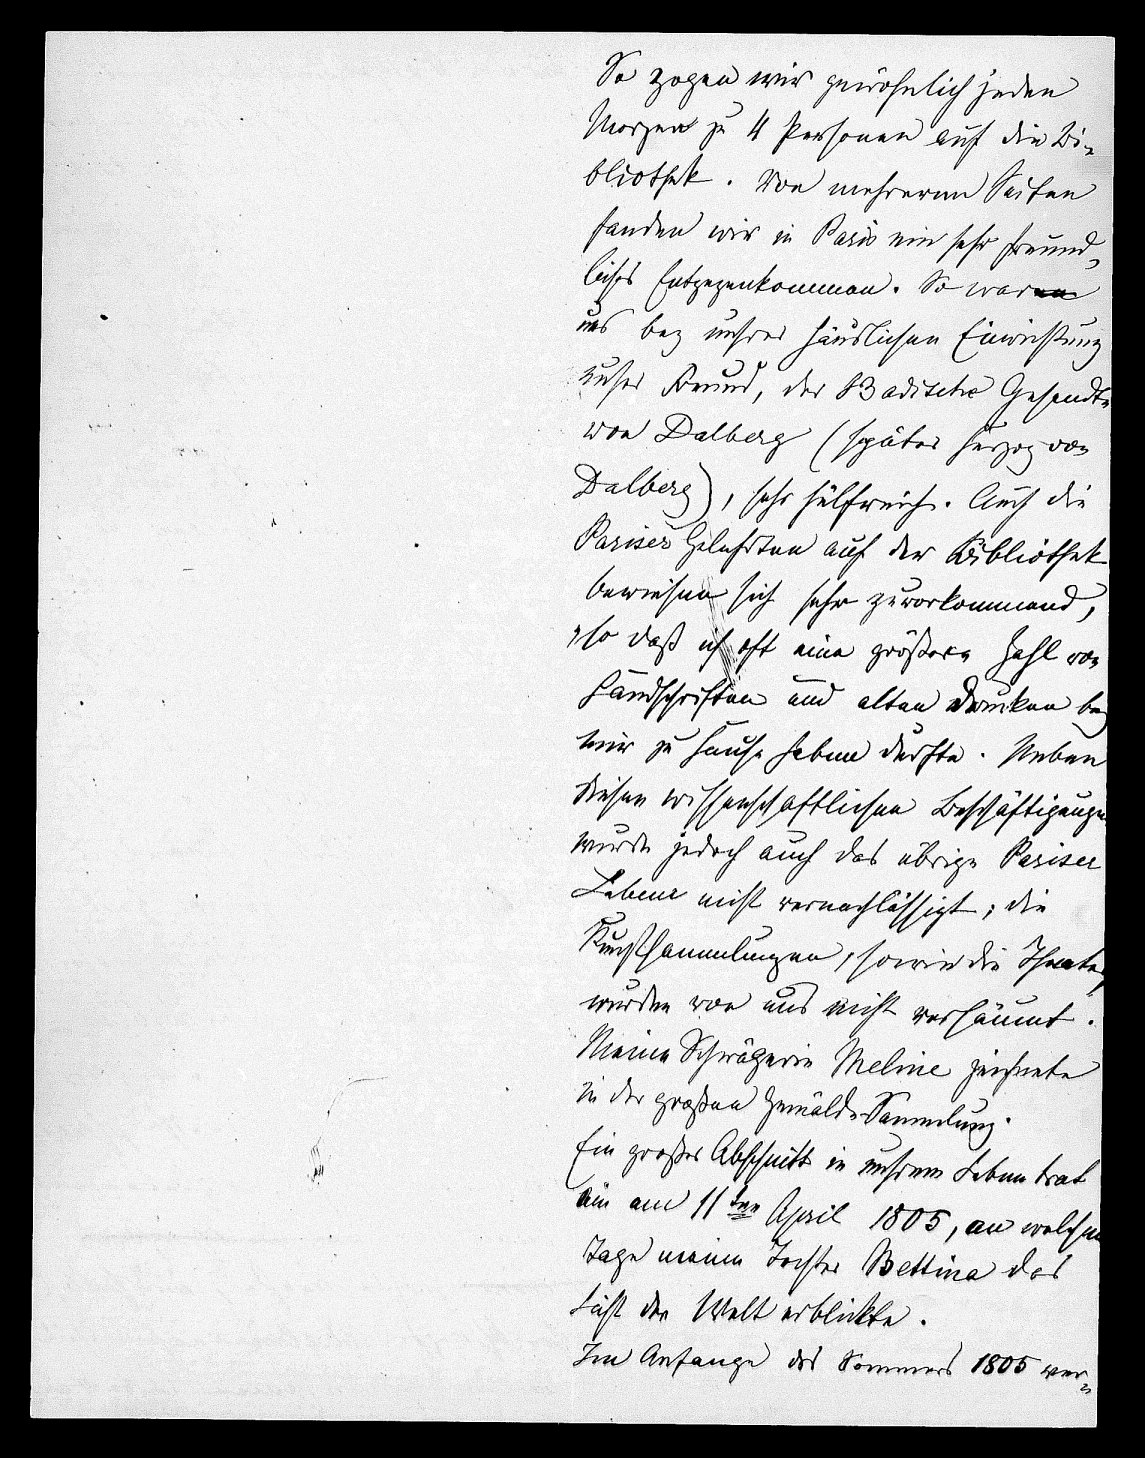 So zogen wir gewöhnlich jeden
Morgen zu 4 Personen auf die Bi-
bliothek. Von mehreren Seiten
fanden wir in Paris ein sehr freund-
liches Entgegenkommen. So war
uns bey unsrer häuslichen Einrichtung
unser Freund, der Badische Gesandte
von Dalberg (später Herzog von
Dalberg), sehr hülfreich. Auch die
Pariser Gelehrten auf der Bibliothek
bewiesen sich sehr zuvorkommend,
so daß ich oft eine größere Zahl von
Handschriften und alten Drucken bey
mir zu Hause haben durfte. Neben
diesen wissenschaftlichen Beschäftigungen
wurde jedoch auch das übrige Pariser
Leben nicht vernachlässigt; die
Kunstsammlungen, sowie die Theater,
wurden von uns nicht versäumt.
Meine Schwägerin Meline zeichnete
in der großen Gemälde-Sammlung.
Ein großer Abschnitt in unsrem Leben trat
ein am 11ten April 1805, an welchem
Tage meine Tochter Bettina das
Licht der Welt erblickte.
Im Anfange des Sommers 1805 ver-